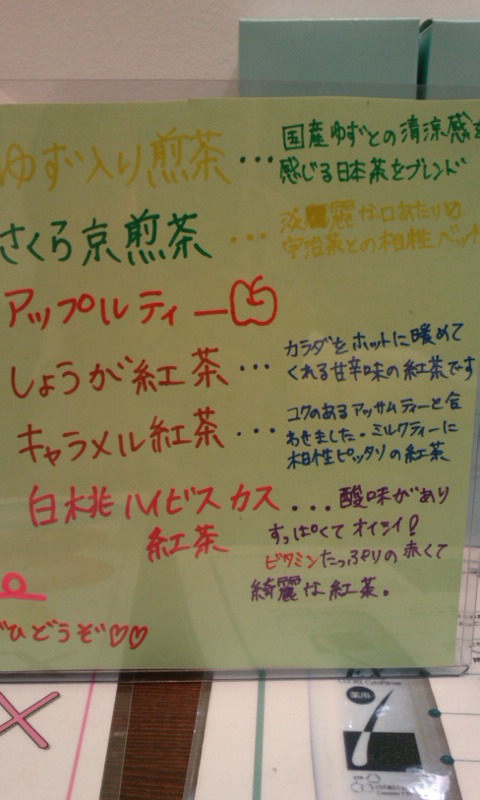 ゆず入り煎茶…国産ゆずとの清涼感を
感じる日本茶をブレンド
さくら京煎茶…淡麗な口あたりの
宇治茶との相性ベッチ
アップルティー
しょうが紅茶…カラダをホットに暖めて
くれる甘辛味の紅茶です
キャラメル紅茶…コクのあるアッサムティーと合
わせました。ミルクティーに
相性ピッタリの紅茶
白桃ハイビスカス
紅茶
...酸味があり
すっぱくてオイシイ!
ビタミンたっぷりの赤くて
綺麗な紅茶。
ぜひどうぞ♡♡
EX
薬用